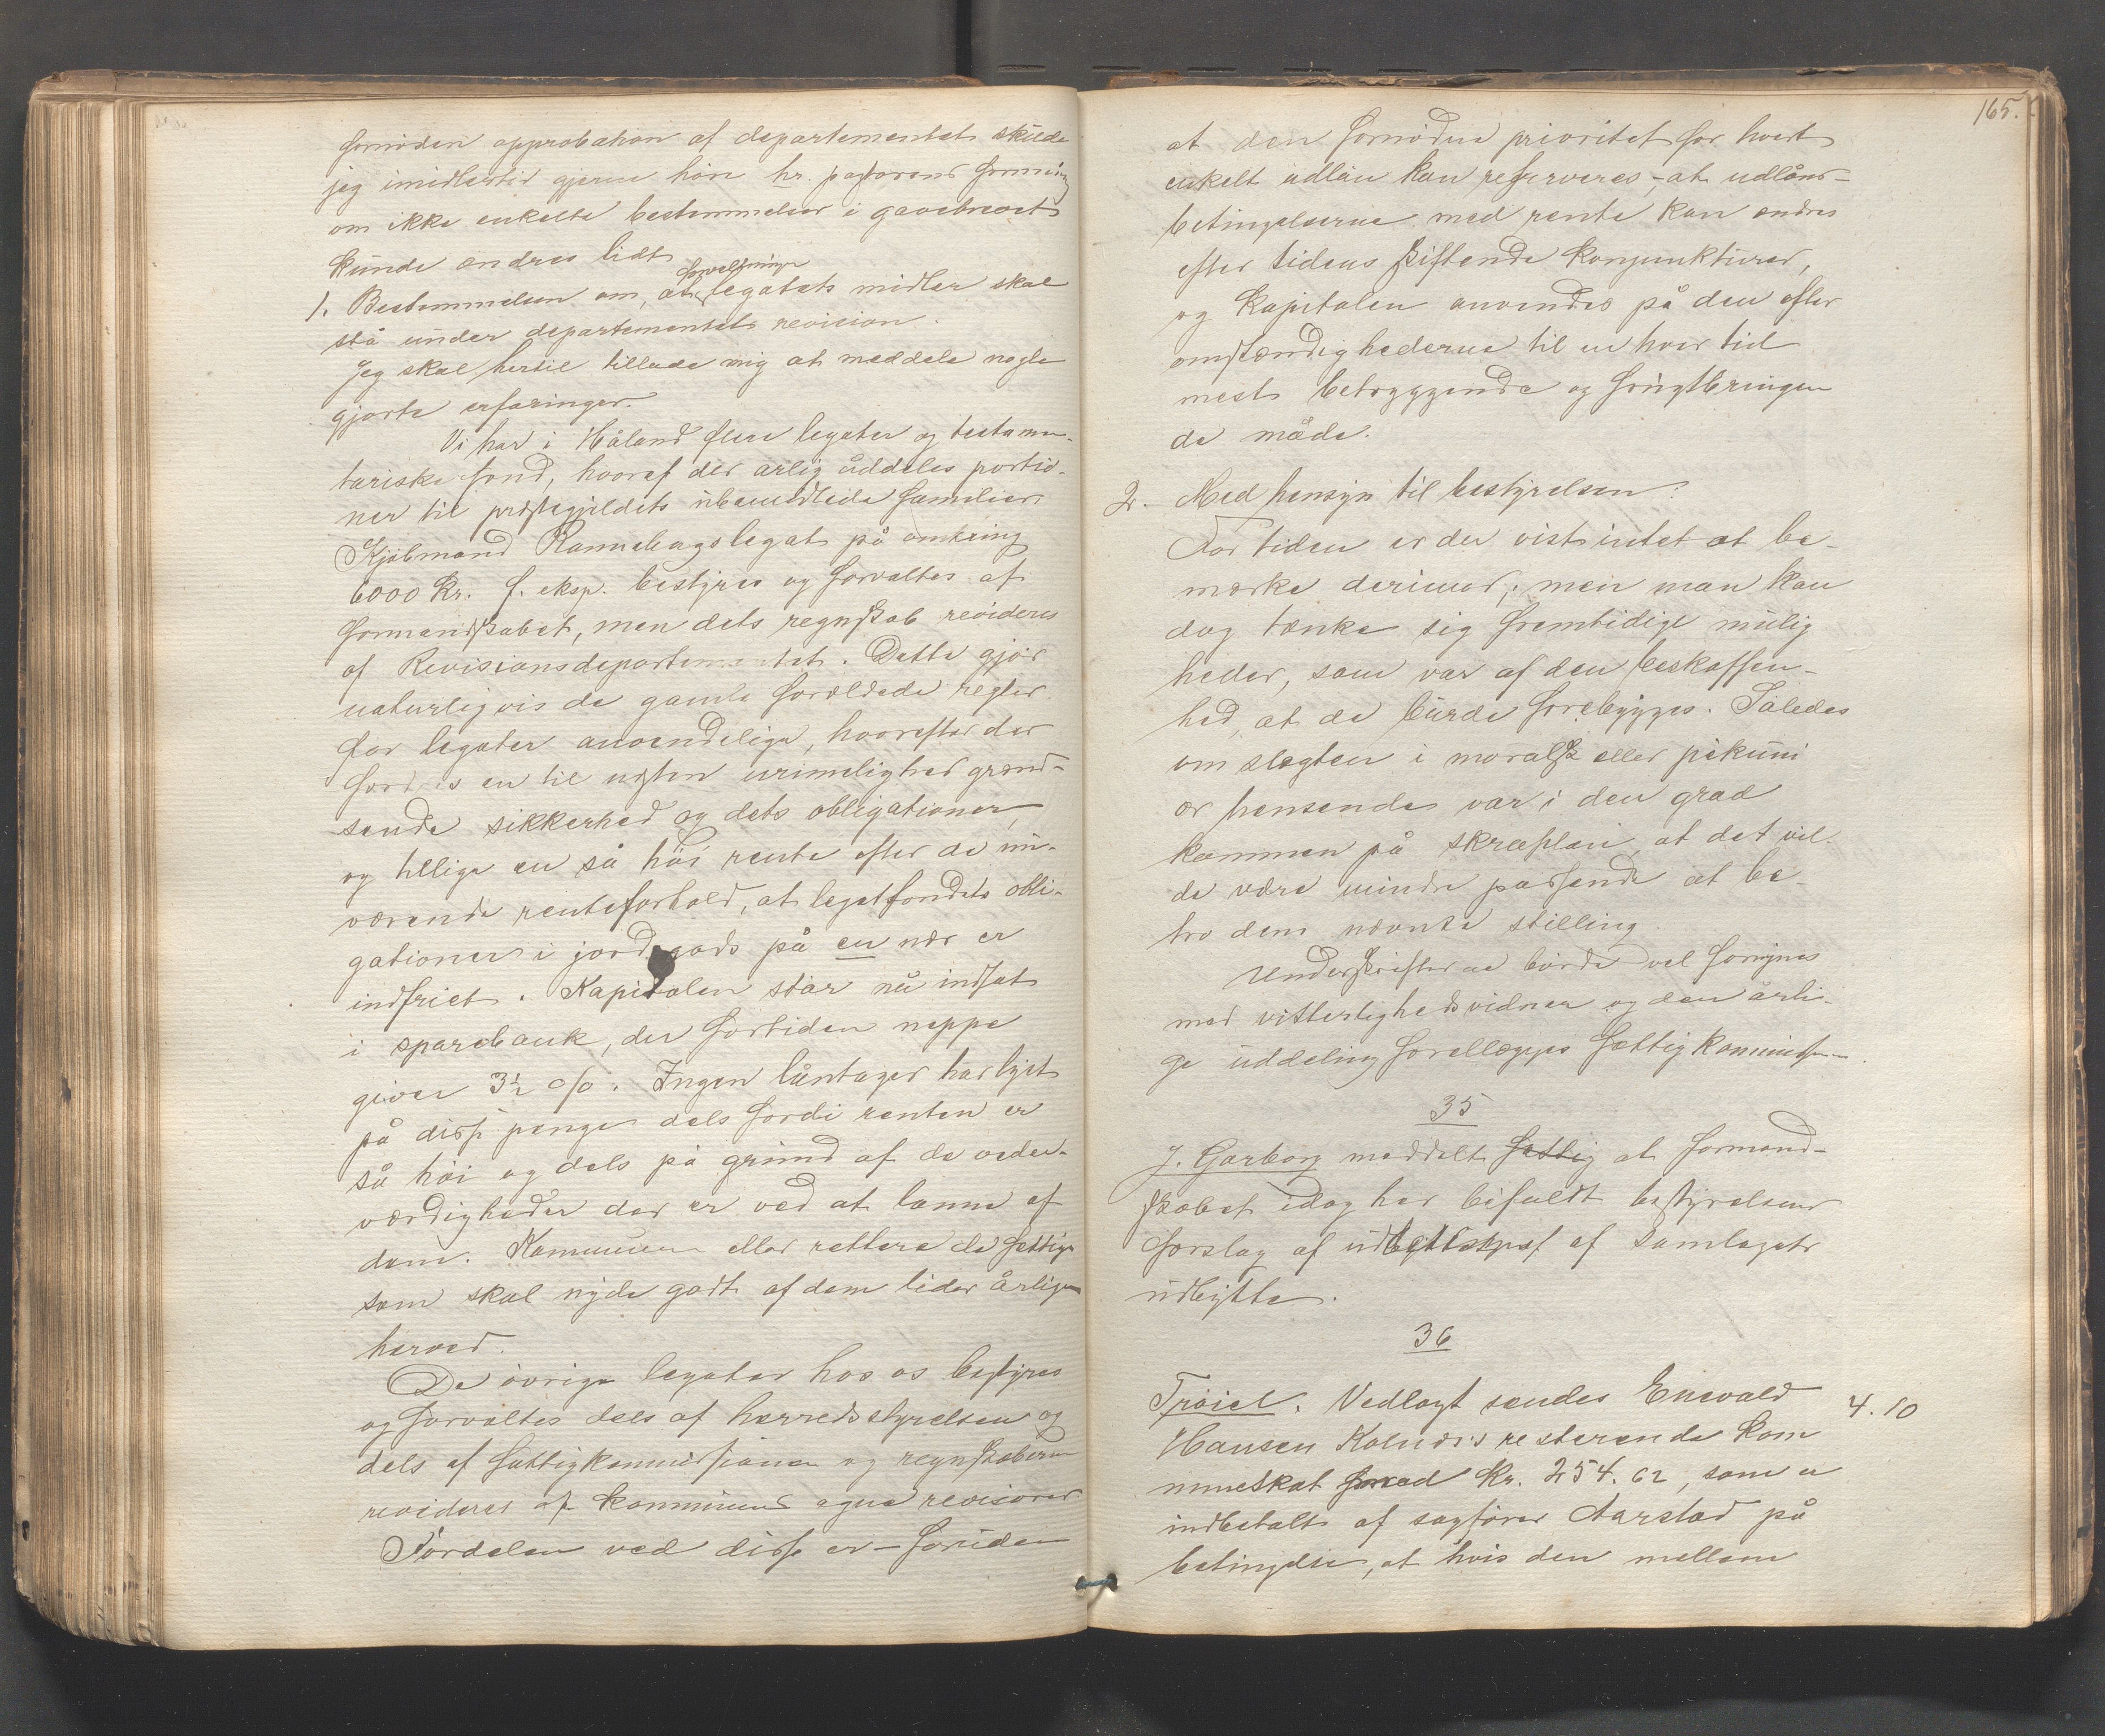 fornöden approbation af departementet skulde
jeg imidlertid gjerne höre hr. pastorens formening
om ikke enkelte bestemmelser i gavebrevet
kunde ændres lidt.
1. Bestemmelsen om, at legatets midler skal
stå under departementets revision.
Jeg skal hertil tillade mig at meddele nogle
gjorte erfaringer.
Vi har i Håland flere legater og testamen-
tariske fond, hvoraf der årlig uddeles portio-
ner til præstegjeldets ubemidlede familier.
Kjöbmand Rannebergs legat på omkring
6000 Kr. f. eksp. bestyres og forvaltes af
formandskabet, men dets regnskab revideres
af Revisionsdepartementet. Dette gjör
naturligvis de gamle forældede regler
for legater anvendelige, hvorefter der
fordres en til næsten urimelighed grænd-
sende sikkerhed og dets obligationer,
og tillige en så höi rente efter de nu-
værende renteforhold, at legatfondets obli-
gationer i jordegods på en nær er
indfriet. Kapitalen står nu indsat
i sparebank, der fortiden neppe
giver 3½ %. Ingen låntager har lyst
på disse penge dels fordi renten er
så höi og dels på grund af de veder-
værdigheder der er ved at låne af
dem. Kommunen eller rettere de fattige
som skal nyde godt af dem lider årligen
herved.
De övrige legater hos os bestyres
og forvaltes dels af herredsstyrelsen og
dels af fattigkommissionen og regnskaberne
revideres af kommunens egne revisorer.
Fordelen ved disse er – foruden
165.
at den fornödne prioritet for hvert
enkelt udlån kan reserveres, – at udlåns-
betingelserne med rente kan ændres
efter tidens skiftende Konjunkturer,
og Kapitalen anvendes på den efter
omstændighederne til en hver tid
mest betryggende og frugtbringen
de måde.
2. Med hensyn til bestyrelsen:
For tiden er der vist intet at be-
mærke derimod; men man kan
dog tænke sig fremtidige mulig
heder, som var af den beskaffen-
hed, at de burde forebygges. Således
om slegten i moralsk eller pekuni
ær henseende var i den grad
kommen på skraaplan, at det vil-
de være mindre passende at be-
tro dem nævnte stilling.
Underskrifterne burde vel forsynes
med vitterlighedsvidner og den årli-
ge uddeling forellægges fattigkommissionen.
35
J. Garborg meddelt fattig at formand-
skabet idag har bifaldt bestyrelsens
forslag af af Samlagets
udbytte.
36
Troiel. Vedlagt sendes Enevald 4.10
Hansen Kolnæs's resterende Kom
muneskat med Kr. 254.62, som er
indbetalt af sagförer Aarstad på
betingelse, at hvis den mellem